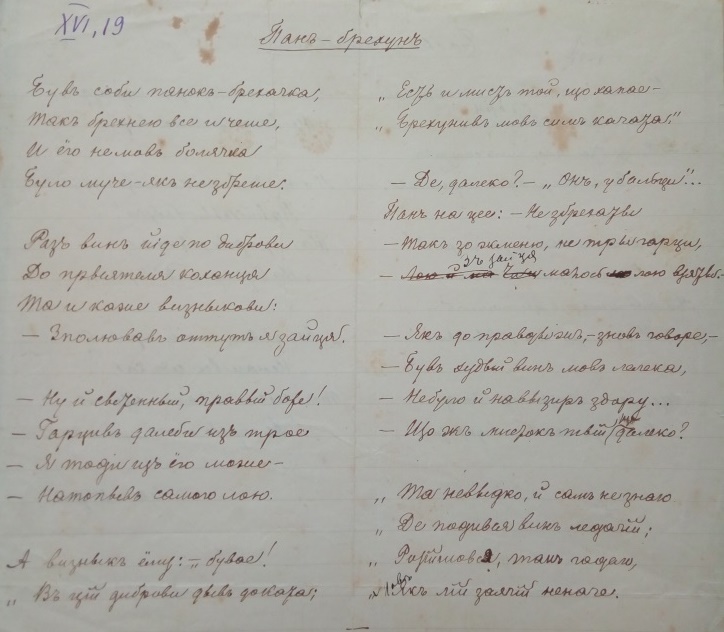 XVI, 19
Панъ-брехунъ
Бувъ соби панокъ-брехачка,
Такъ брехнею все и чеше,
И ёго немовъ болячка
Було муче-якъ не збреше.
Разъ винъ йіде по диброви
До прыятеля коханця
Та и каже визныкови:
— Зполювавъ оттутъ я зайця.
— Ну й свяченный, правый боже!
— Гарцивъ далеби изъ трое
— Я тоди изъ ёго може-
— Натопывъ самого лою.
А визныкъ ёму: — „бувае!
„ Въ цій диброви дывъ доказа;
„ Есть и мисть той, що хапае-
„ Брехунивъ мовъ симъ каказа."
— Де, далеко? — „Онъ, у балци"...
Панъ на цее: — Не збрехаты
— Такъ зо жменю, не тры гарци,
— зъ зайця малось лою взяты.
— Якъ до правды жъ, — зновъ говоре, —
— Бувъ худый винъ мовъ лелека,
— Небуло й на вызиръ здору...
— Що жъ мисьтокъ твій ще далеко?
„ Та невыдко, й самъ не знаю
„ Де подився винъ ледачій;
„ Розійшовся, такъ гадаю,
„ Якъ лій заячій неначе.